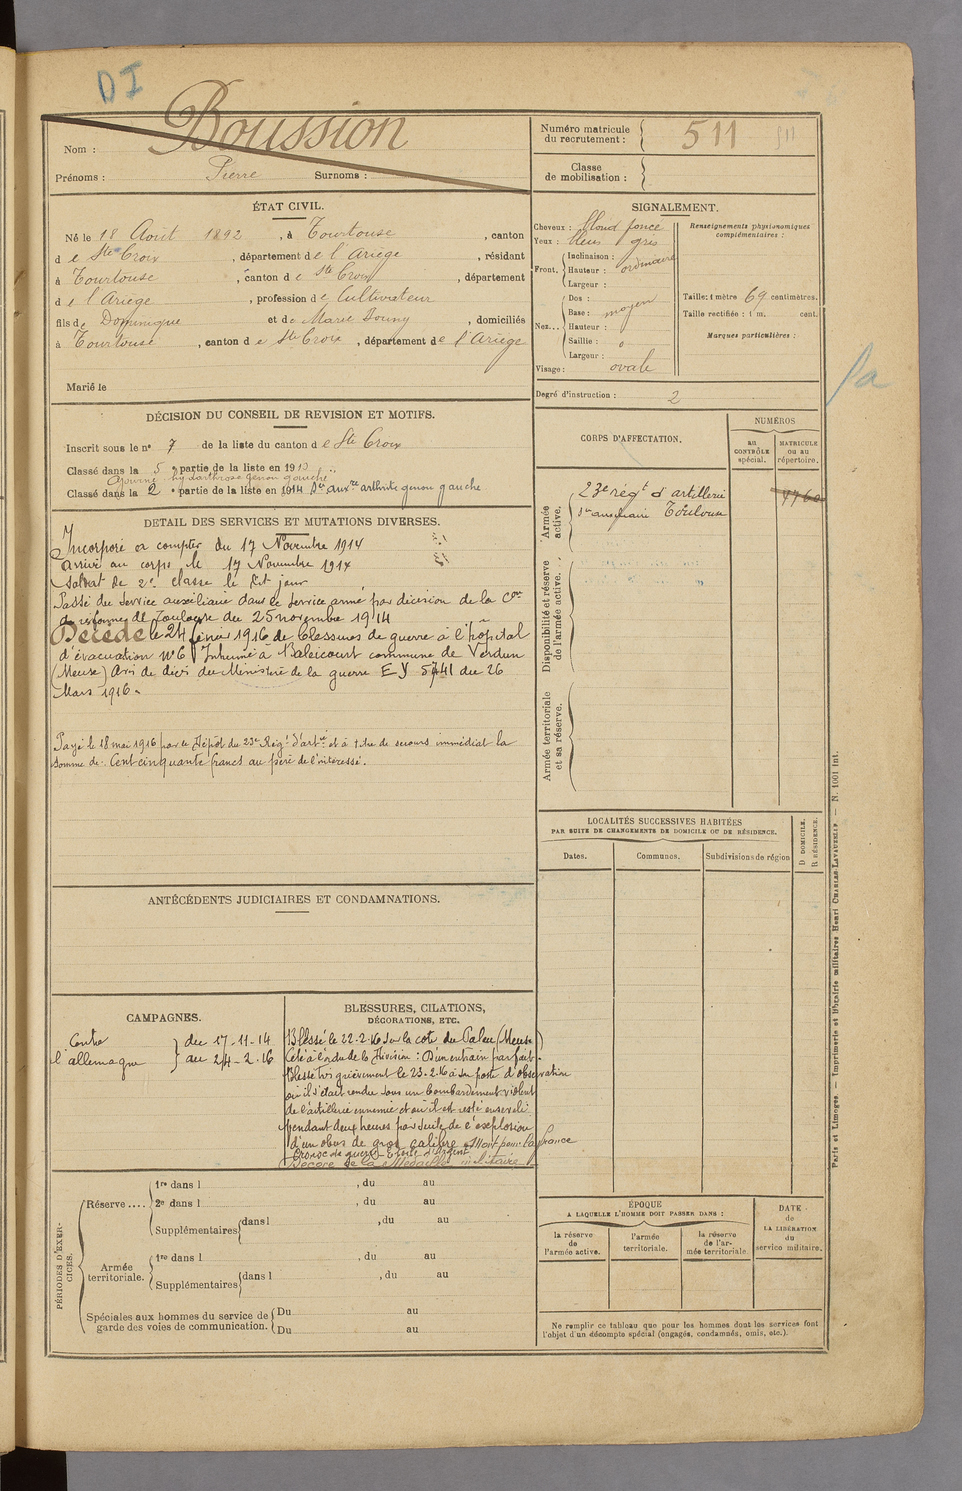 DI
Boussion
Nom :
Prénoms : Pierre Surnoms :
Numéro matricule du recrutement : 511
Classe de mobilisation :
ÉTAT CIVIL.
Né le 18 Août 1892, à Tourtouse, canton
de Ste Croix, département de l'Ariège, résidant
à Tourtouse, canton de Ste Croix, département
de l'Ariège, profession de Cultivateur
fils de Dominique et de Marie Douny, domiciliés
à Tourtouse, canton de Ste Croix, département de l'Ariège
Marié le
SIGNALEMENT.
Cheveux : blond foncé
Yeux : bleus gris
Front. Inclinaison :
Hauteur : ordinaire
Largeur :
Nez... Dos :
Base : moyen
Hauteur :
Saillie : o
Largeur :
Visage : ovale
Renseignements physionomiques complémentaires :
Taille : 1 mètre 69 centimètres.
Taille rectifiée : 1 m. cent.
Marques particulières :
Degré d'instruction : 2
fa
DÉCISION DU CONSEIL DE REVISION ET MOTIFS.
Inscrit sous le n° 7 de la liste du canton de Ste Croix
Classé dans la 5e partie de la liste en 1913
Ajourné hydarthrose genou gauche
Classé dans la 2e partie de la liste en 1914 Sce auxre arthrite genou gauche
DÉTAIL DES SERVICES ET MUTATIONS DIVERSES.
Incorporé à compter du 17 Novembre 1914
Arrivé au corps le 17 Novembre 1914
soldat de 2e classe le dit jour
Passé du Service auxiliaire dans le service armé par décision de la Con
de réforme de Toulouse du 25 novembre 1914
Décédé le 24 février 1916 de blessures de guerre à l'hôpital
d'évacuation N°6 Inhumé à Baleicourt commune de Verdun
(Meuse) Avis de décès du Ministère de la guerre E y 5741 du 26
Mars 1916.
Payé le 18 mai 1916 par le Dépôt du 23e Régt d'artie et à titre de secours immédiat la
somme de Cent cinquante francs au père de l'intéressé.
CORPS D'AFFECTATION.
NUMÉROS
au CONTRÔLE spécial.
MATRICULE ou au répertoire.
Armée active.
23e régt d'artillerie
Sce auxiliaire Toulouse
7760
Disponibilité et réserve de l'armée active.
Armée territoriale et sa réserve.
LOCALITÉS SUCCESSIVES HABITÉES
PAR SUITE DE CHANGEMENTS DE DOMICILE OU DE RÉSIDENCE.
Dates.
Communes.
Subdivisions de région
D DOMICILE.
R RÉSIDENCE.
ANTÉCÉDENTS JUDICIAIRES ET CONDAMNATIONS.
CAMPAGNES.
Contre l'allemagne
du 17-11-14
au 24-2-16
BLESSURES, CITATIONS,
DÉCORATIONS, ETC.
Blessé le 22-2-16 sur la cote du Talou (Meuse)
Cité à l'ordre de la Division : D'un entrain parfait.
Blessé très grièvement le 23-2-16 à son poste d'observation
où il s'était rendu sous un bombardement violent
de l'artillerie ennemie et où il est resté enseveli
pendant deux heures par suite de l'explosion
d'un obus de gros calibre. Mort pour la france
Croix de guerre Etoile d'Argent
Décoré de la Médaille militaire
PÉRIODES D'EXERCICES.
Réserve.... 1re dans l , du au
2e dans l , du au
Supplémentaires dans l , du au
Armée territoriale. 1re dans l , du au
Supplémentaires dans l , du au
Spéciales aux hommes du service de garde des voies de communication. Du au
Du au
ÉPOQUE
A LAQUELLE L'HOMME DOIT PASSER DANS :
la réserve de l'armée active.
l'armée territoriale.
la réserve de l'armée territoriale.
DATE de LA LIBÉRATION du service militaire.
Ne remplir ce tableau que pour les hommes dont les services font
l'objet d'un décompte spécial (engagés, condamnés, omis, etc.).
Paris et Limoges. — Imprimerie et librairie militaires Henri CHARLES-LAVAUZELLE. — N. 1001 int.